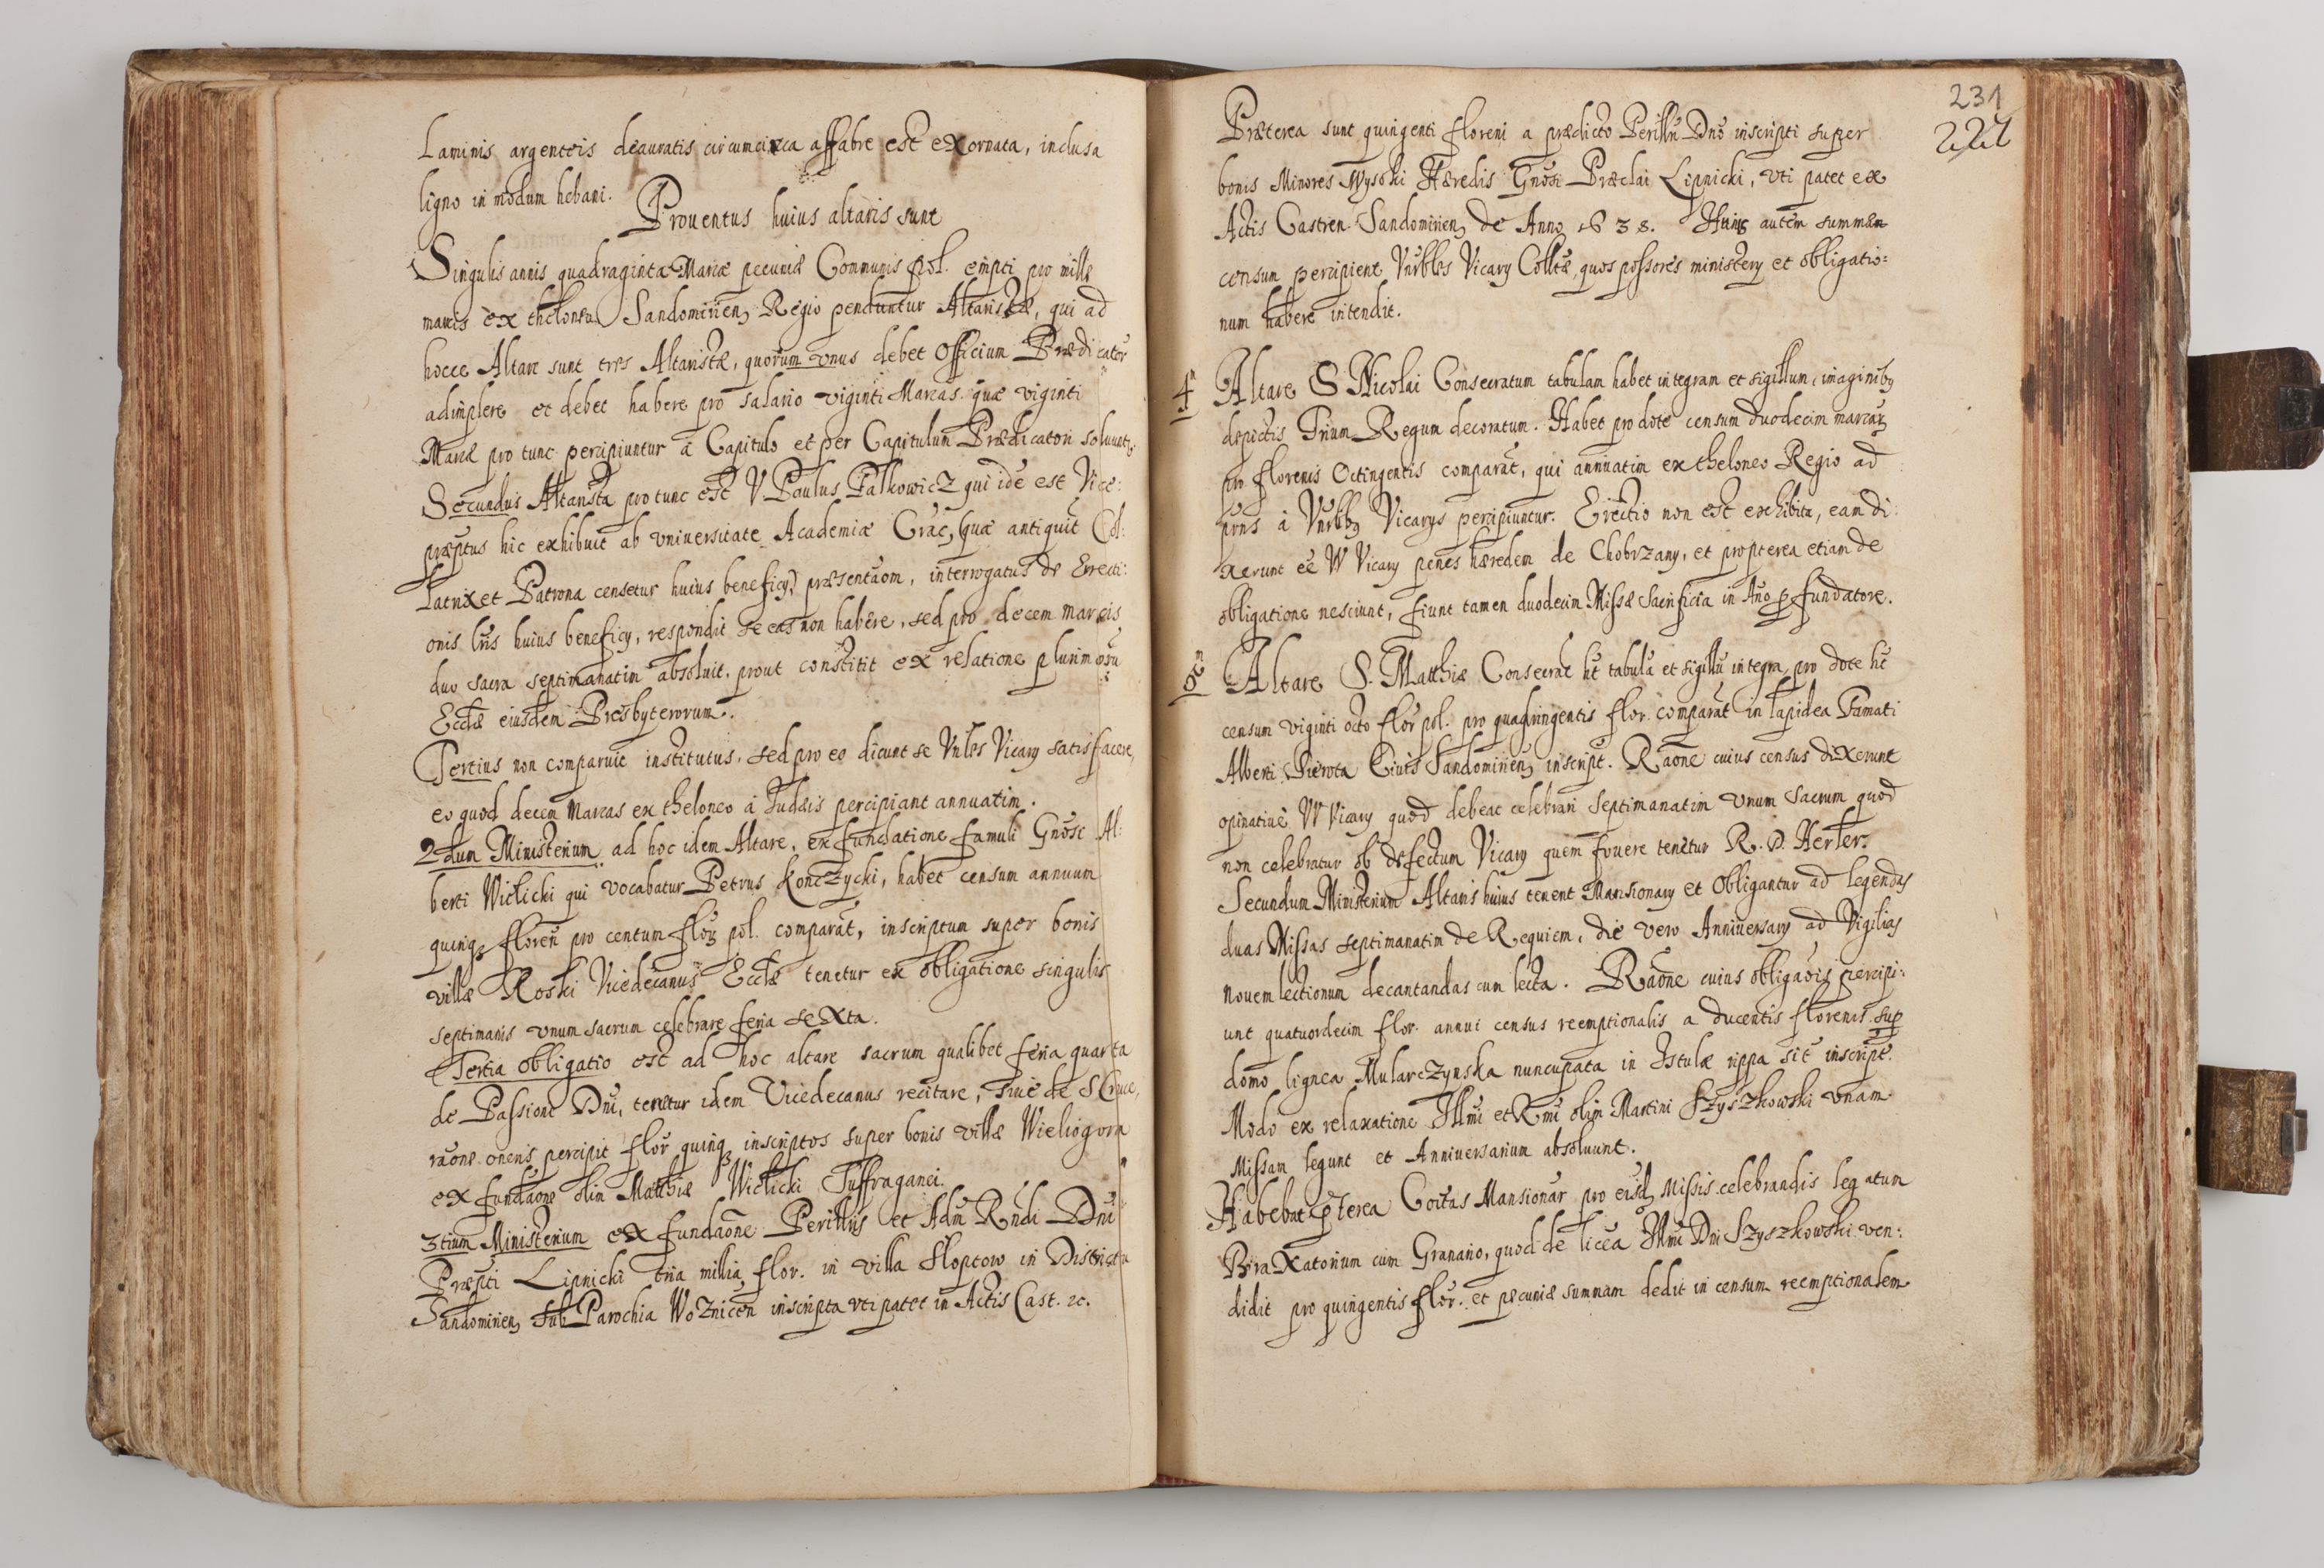 Laminis argenteis deauratis circumcirca affabre est exornata, inclusa
ligno in modum hebani.
Prouentus huius altaris sunt
Singulis annis quadraginta Marcæ pecuniæ Communis pol. empti pro mille
marcis ex theloneo Sandomirien Regio penduntur Altaristæ, qui ad
hocce Altare sunt tres Altaristæ, quorum vnus debet Officium Prædicator
adimplere et debet habere pro salario viginti Marcas. quæ viginti
Marcæ pro tunc percipiuntur à Capitulo et per Capitulum Prædicatori soluuntr
Secundus Altarista pro tunc est V Paulus Palkowicz qui idē est Vice:
præptus hic exhibuit ab vniuersitate Academiæ Crac, (quæ antiquit Col:
latrix et Patrona censetur huius beneficy) præsentaōm, interrogatus de Erecti:
onis lris huius beneficy, respondit se eas non habere, sed pro decem marcis
duo sacra septimanatim absoluit, prout constitit ex relatione plurimorū
Ecclæ eiusdem Presbyterorum.
Tertius non comparuit institutus, sed pro eo dicunt se Vnles Vicary satisfacere,
eo quod decem Marcas ex theloneo à Judæis percipiant annuatim.
2dum Ministerium ad hoc idem Altare, ex fundatione famuli Gnosi Al:
berti Wielicki qui vocabatur Petrus Konczycki, habet censum annuum
quinq floren pro centum flor pol. comparat, inscriptum super bonis
villæ Roski Vicedecanus Ecclæ tenetur ex obligatione singulis
septimanis vnum sacrum celebrare feria sexta.
Tertia obligatio est ad hoc altare sacrum qualibet feria quarta
de Passione Dni, tenetur idem Vicedecanus recitare, siue de S Cruce,
raōne oneris percipit flor quinq inscriptos super bonis villæ Wieliogora
ex fundaōne olim Matthiæ Wielicki Suffraganei.
3tium Ministerium ex fundaōne Perillris et Adm Rndi Dni
Præpti Lipnicki tria millia flor. in villa Sloptow in Districtu
Sandomirien sub Parochia Woznicen inscripta vti patet in Actis Cast. &c.
231
227
Præterea sunt quingenti floreni a prædicto Perillri Dnō inscripti super
bonis Minores Wysoki Hæredis Gnosi Præclai Lipnicki, vti patet ex
Actis Castren Sandomirien de Anno 1638. Huius autem summæ
censum percipient Vnrbles Vicary Colltæ, quos possores ministery et obligatio:
num habere intendit.
4m Altare S Nicolai Consecratum tabulam habet integram et sigillum, imaginibq
depictis Trium Regum decoratum. Habet pro dote censum duodecim marcar
pro florenis Octingentis comparat, qui annuatim ex theloneo Regio ad
prns à Vnrblbq Vicarys percipiuntur. Erectio non est exhibita, eam di:
xerunt eē W Vicary penes hæredem de Chobrzany, et propterea etiam de
obligatione nesciunt, fiunt tamen duodecim Missæ Sacrificia in Año p fundatore.
5m Altare S. Matthiæ Consecrat ht tabulā et sigillū integra, pro dote ht
censum viginti octo flor pol. pro quadringentis flor. comparat in lapidea Famati
Alberti Pierota Ciuis Sandomirien inscript. Raōne cuius census dixerunt
opinatiue W Vicary quod debeat celebrari septimanatim vnum Sacrum quod
non celebratur ob defectum Vicary quem fouere tenetur R. D. Herler.
Secundum Ministerium Altaris huius tenent Mansionary et Obligantur ad legendas
duas Missas septimanatim de Requiem, die vero Anniuersary ad Vigilias
Nouem lectionum decantandas cum lecta. Raōne cuius obligaōis percipi:
unt quatuordecim flor. annui census reemptionalis a ducentis florenis sup
domo lignea Mularczynska nuncupata in Istulæ rippa sit inscript.
Modo ex relaxatione Illmi et Rmi olim Martini Szyszkowski vnam
Missam legunt et Anniuersarium absoluunt.
Habebat pterea Coitas Mansionar pro eisd Missis celebrandis legatum
Braxatorium cum Granario, quod de licea Illmi Dni Szyszkowski ven:
didit pro quingentis flor. et pecuniæ summam dedit in censum reemptionalem